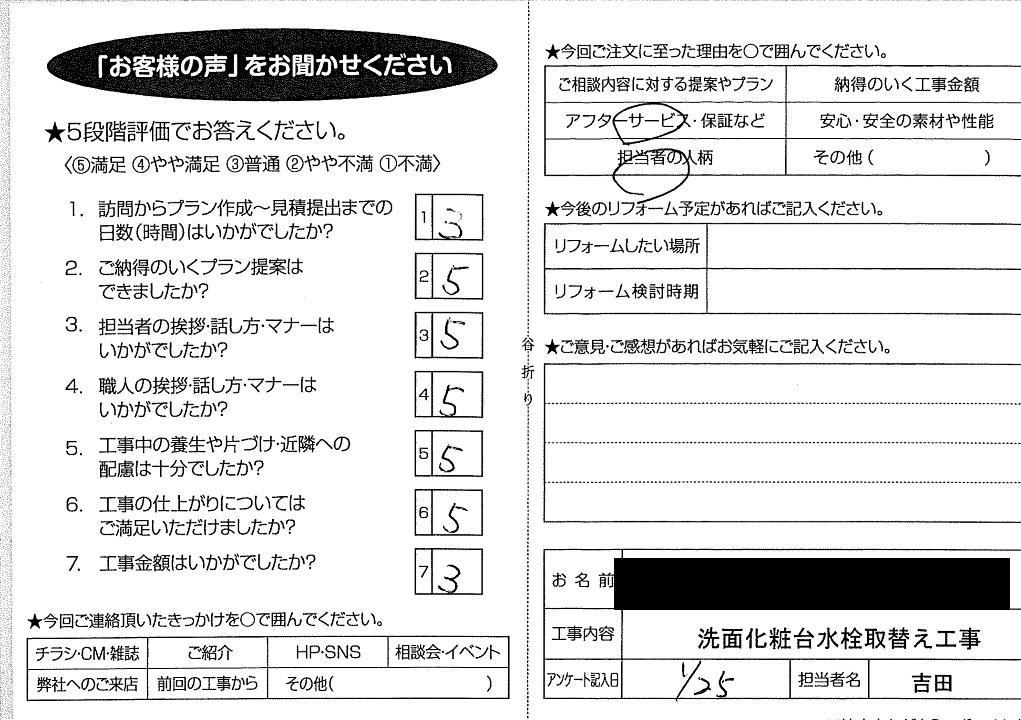 「お客様の声」をお聞かせください
★5段階評価でお答えください。
〈⑤満足 ④やや満足 ③普通 ②やや不満 ①不満〉
1. 訪問からプラン作成〜見積提出までの
日数(時間)はいかがでしたか?
1 3
2. ご納得のいくプラン提案は
できましたか?
2 5
3. 担当者の挨拶・話し方・マナーは
いかがでしたか?
3 5
4. 職人の挨拶・話し方・マナーは
いかがでしたか?
4 5
5. 工事中の養生や片づけ・近隣への
配慮は十分でしたか?
5 5
6. 工事の仕上がりについては
ご満足いただけましたか?
6 5
7. 工事金額はいかがでしたか?
7 3
★今回ご連絡頂いたきっかけを○で囲んでください。
チラシ・CM・雑誌 ご紹介 HP・SNS 相談会・イベント
弊社へのご来店 前回の工事から その他( )
谷折り
★今回ご注文に至った理由を○で囲んでください。
ご相談内容に対する提案やプラン 納得のいく工事金額
アフターサービス・保証など 安心・安全の素材や性能
担当者の人柄 その他( )
★今後のリフォーム予定があればご記入ください。
リフォームしたい場所
リフォーム検討時期
★ご意見・ご感想があればお気軽にご記入ください。
お名前
工事内容 洗面化粧台水栓取替え工事
アンケート記入日 1/25 担当者名 吉田